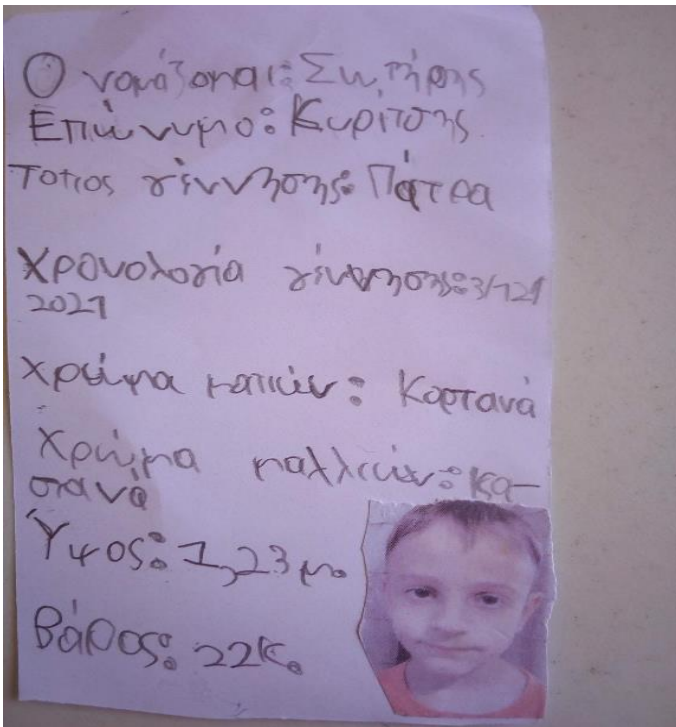 Ονομάζομαι: Σωτήρης
Επώνυμο: Κυριτσης
Τοπος γέννησης: Πάτρα
Χρονολογία γέννησης: 3/12/
2021
Χρώμα ματιών: Καστανά
Χρώμα μαλλιών: κα-
στανά
Ύψος: 1,23 μ.
Βάρος: 22κ.